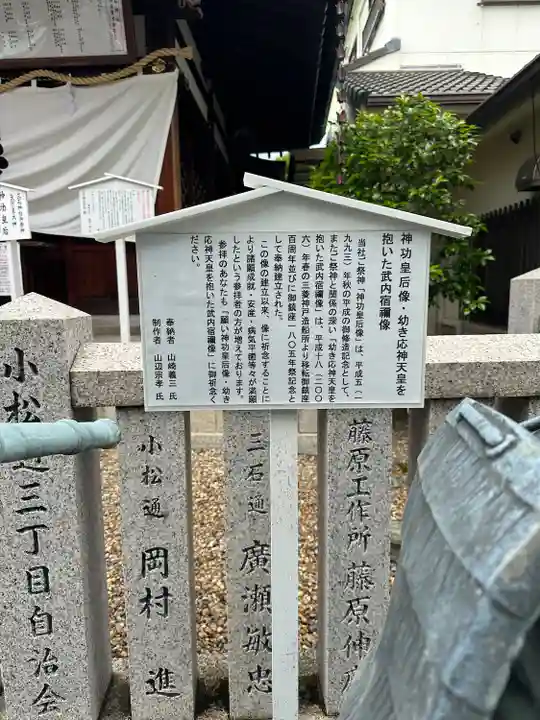 神功皇后像・幼き応神天皇を
抱いた武内宿禰像
当社ご祭神「神功皇后像」は、平成五(一
九九三)年秋の平成の御修造記念として、
またご祭神と関係の深い「幼き応神天皇を
抱いた武内宿禰像」は、平成十八(二〇〇
六)年春の三菱神戸造船所より移転御鎮座
百周年並びに御鎮座一八〇五年祭記念と
して奉納建立された。
この像の建立以来、像に祈念することに
より諸願成就・安産・病気平癒等々が満願
したという参拝者の方が増えております。
参拝のあなたも「願い神功皇后像・幼き
応神天皇を抱いた武内宿禰像」に御祈念く
ださい。
奉納者 山崎義三 氏
制作者 山辺宗孝 氏
神功皇后
藤原工作所 藤原伸
三石通 廣瀬敏忠
小松通 岡村 進
小松通三丁目自治会